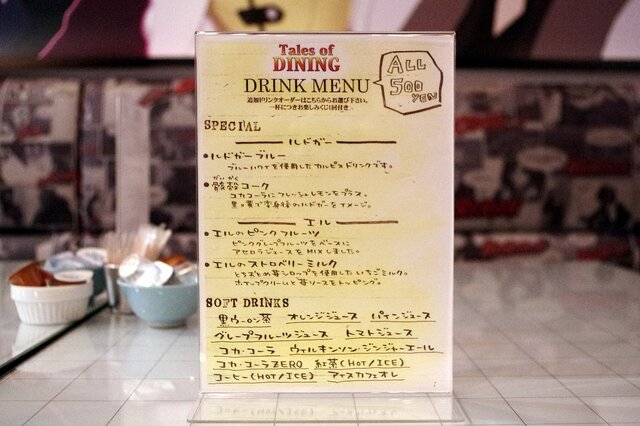 Tales of
DINING
DRINK MENU
ALL
500
YEN
追加ドリンクオーダーはこちらからお選び下さい。
一杯につきお楽しみくじ1回付き
SPECIAL
ルドガー
・ルドガーブルー
ブルーハワイを使用したカルピスドリンクです。
がいかく
・骸殻コーク
コカコーラにフレッシュレモンをプラス。
黒×黄で変身後のルドガーをイメージ。
エル
・エルのピンクフルーツ
ピンクグレープフルーツをベースに
アセロラジュースをMIXしました。
・エルのストロベリーミルク
とちおとめ苺シロップを使用したいちごミルク。
ホイップクリームと苺ソースをトッピング。
SOFT DRINKS
黒ウーロン茶 オレンジジュース パインジュース
グレープフルーツジュース トマトジュース
コカ・コーラ ウィルキンソン・ジンジャーエール
コカ・コーラZERO 紅茶(HOT/ICE)
コーヒー(HOT/ICE) アイスカフェオレ